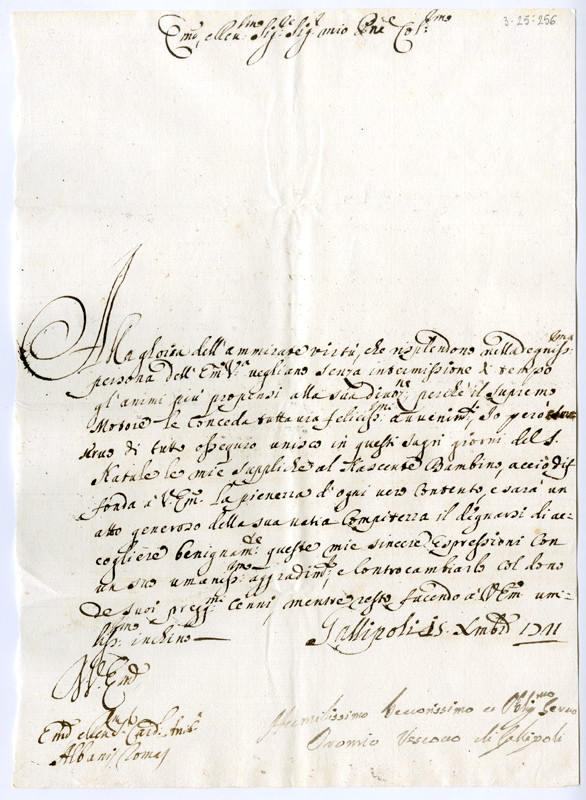 3-25-256
Em.mo, e Rev.mo Sig.re Sig.r mio P.ne Col.mo
Alla gloria dell'ammirate virtù, che risplendono nella degniss.ma
persona dell'Em.V.ra vegliano senza intermissione di tempo
gl'animi più propensi alla sua divoz.ne, perche il supremo
Motore le conceda tuttavia feliciss.mi avvenim.ti, Io però
di tutto ossequio unisco in questi sagri giorni del S.
Natale le mie suppliche al Nascente Bambino, acciò dif
fonda à V. Em. la pienezza d'ogni vero contento, e sarà un
atto generoso della sua natia Compitezza il degnarsi di ac-
cogliere benignam.te queste mie sincere Espressioni con
un suo umaniss.mo aggradim.to, e controcambiarlo col dono
de suoi preg.mi cenni, mentre resto facendo à V. Em. um-
liss.mo inchino
Gallipoli 15. Xmbre 1711
Di V. Em.
Em.mo e Rev.mo Sig. Card. Ann.
Albani Roma
Umilissimo Devotissimo et Oblig.mo Servo
Oronzio Vescovo di Gallipoli